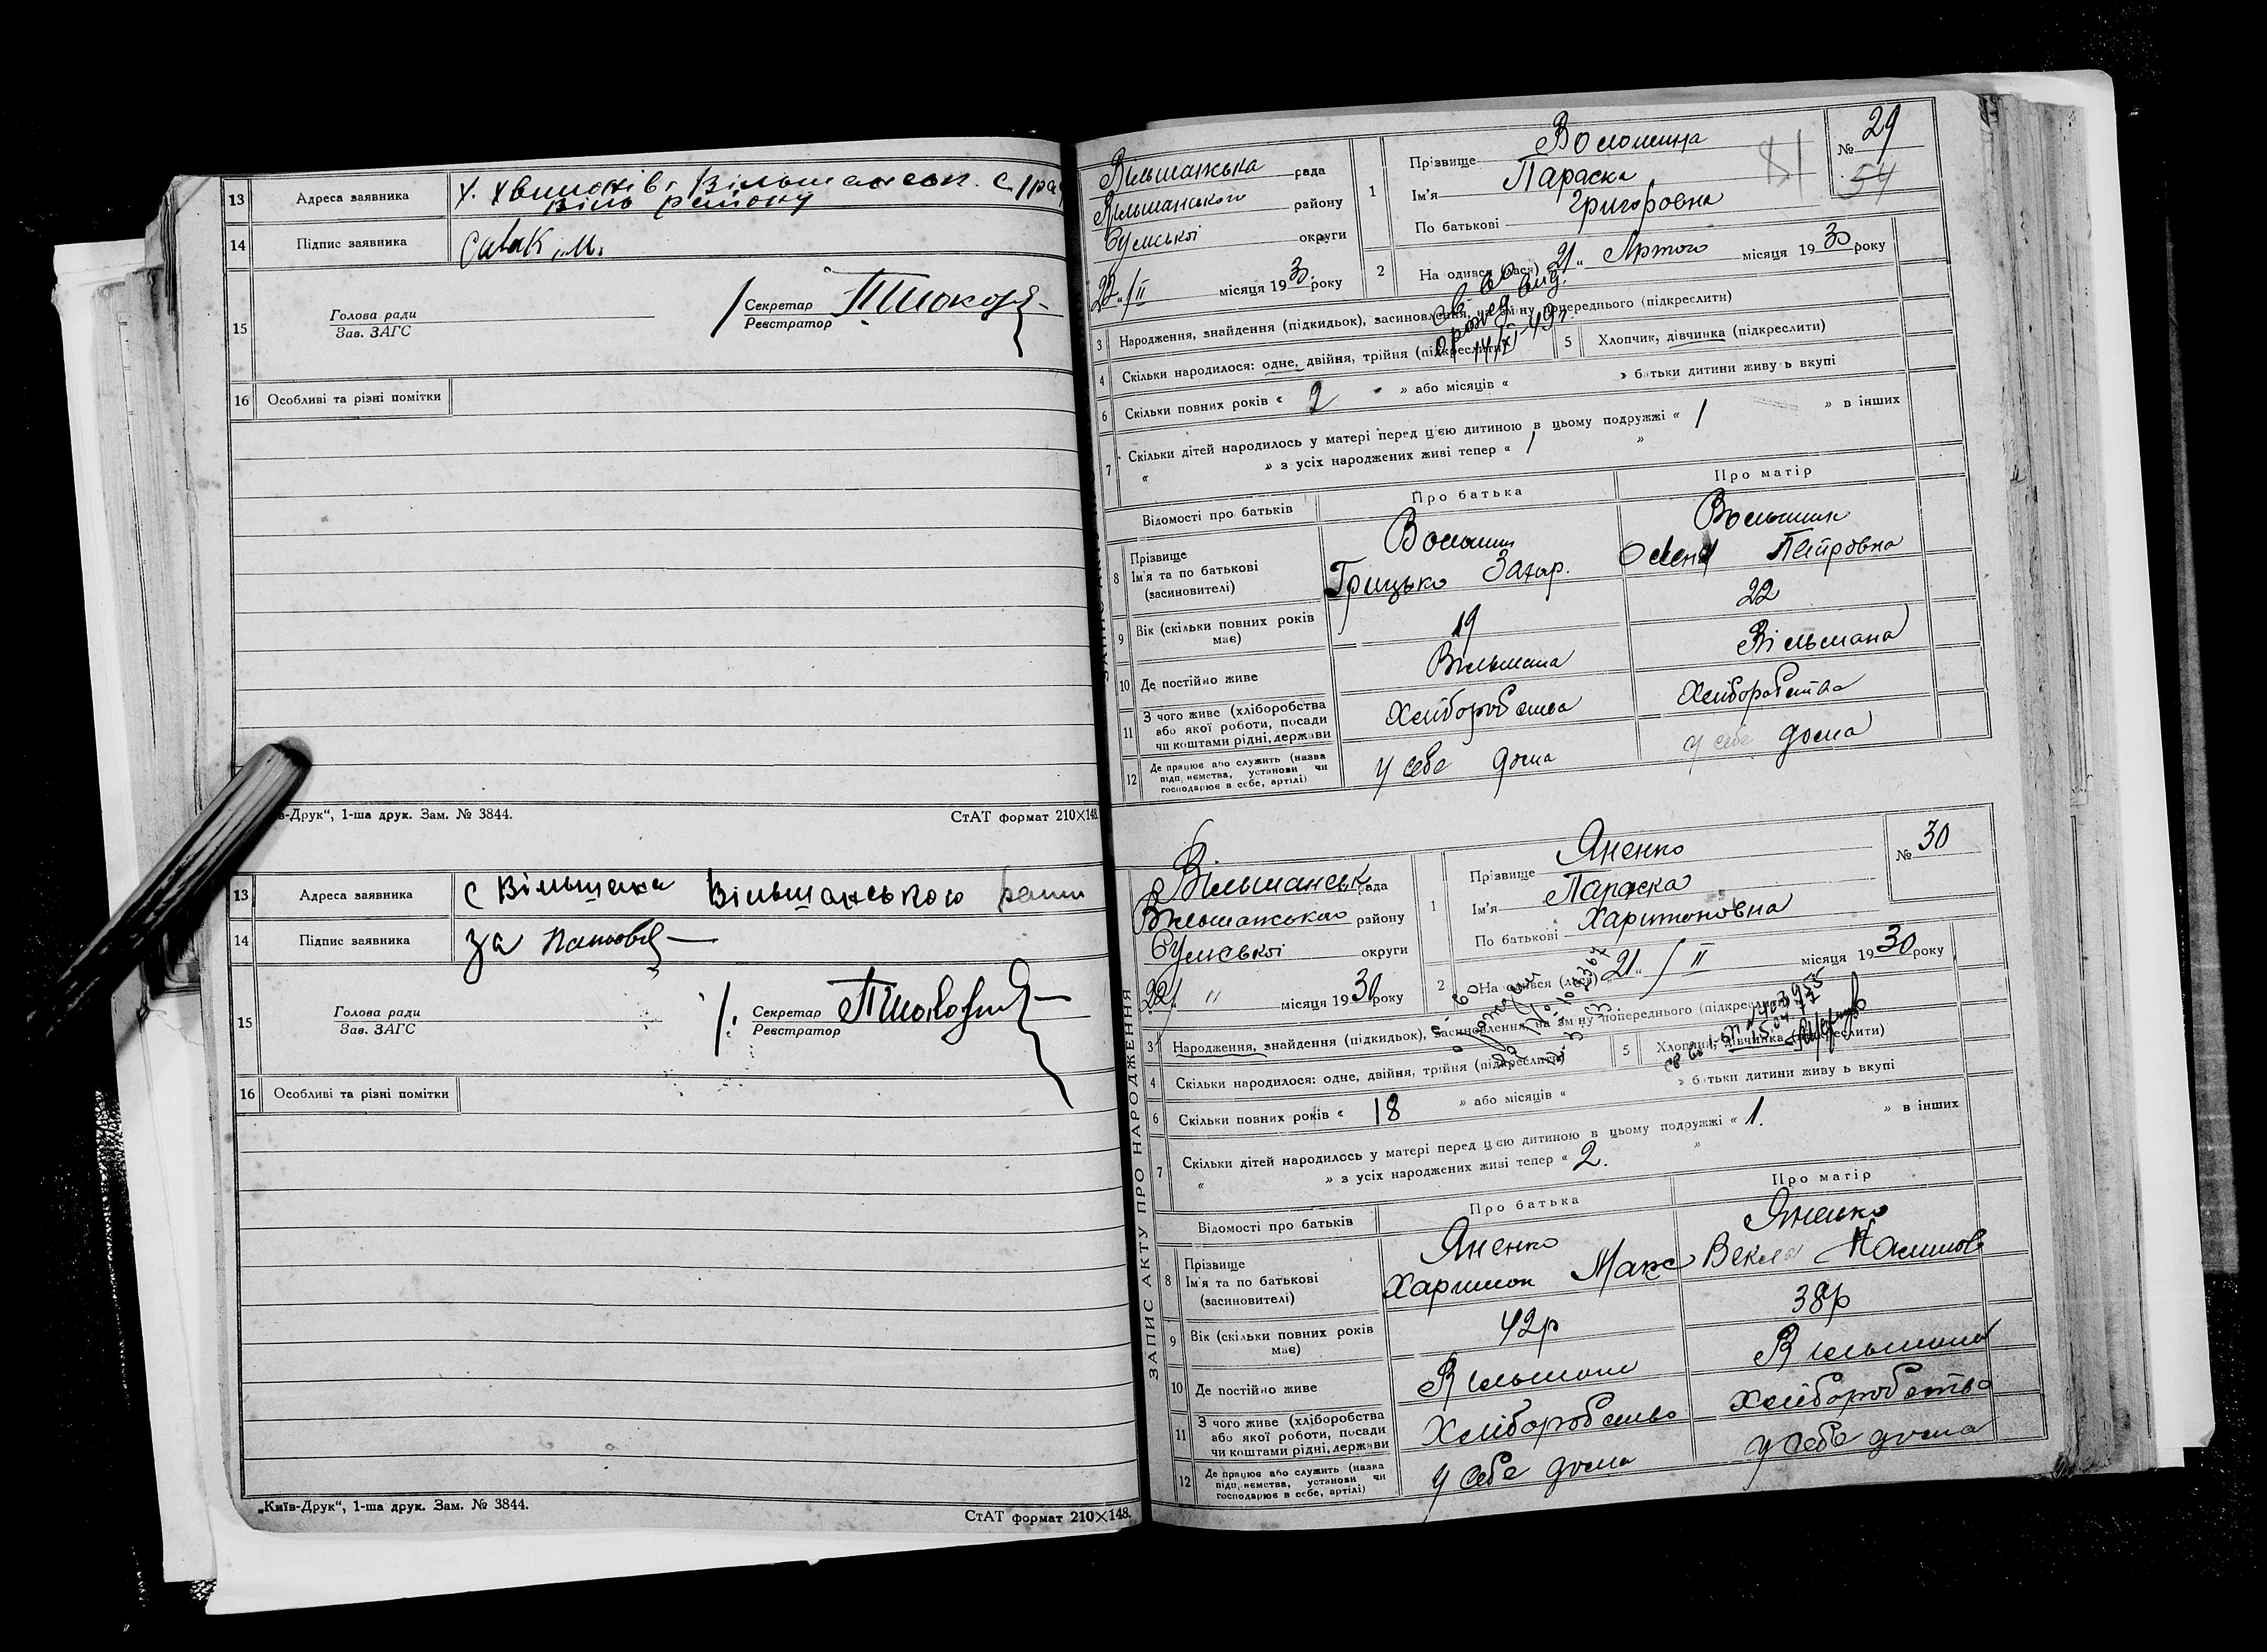 13 Адреса заявника х. Хвилонів, Вільшанськ. с/рад
Віль району
14 Підпис заявника Сивак М.
15 Голова ради
Зав. ЗАГС
Секретар
Реєстратор
16 Особливі та різні помітки
в-Друк“, 1-ша друк. Зам. № 3844. СтАТ формат 210×148.
13 Адреса заявника с Вільшана Вільшанського
14 Підпис заявника за
15 Голова ради
Зав. ЗАГС
Секретар
Реєстратор
16 Особливі та різні помітки
„Київ-Друк“, 1-ша друк. Зам. № 3844. СтАТ формат 210×148.
Вільшанська рада
Вільшанського району
Сумської округи
22 „/II місяця 1930 року
1 Прізвище Волошина
Ім'я Параска
По батькові Григоровна
№ 29
54
81
2 На одився (лася) 21 „ Лютого місяця 1930 року
3 Народження, знайдення (підкидьок), засиновлення, на зміну попереднього (підкреслити)
14/XI 49 г.
4 Скільки народилося: одне, двійня, трійня (підкреслити)
5 Хлопчик, дівчинка (підкреслити)
6 Скільки повних років « 2 » або місяців « » батьки дитини живуть вкупі
7 Скільки дітей народилось у матері перед цією дитиною в цьому подружжі « 1 » в інших
« » з усіх народжених живі тепер « 1 »
Відомості про батьків Про батька Про матір
8 Прізвище Волошин Волошин
Ім'я та по батькові Грицько Захар. Олена Петровна
(засиновителі)
9 Вік (скільки повних років має) 19 22
10 Де постійно живе Вільшана Вільшана
11 З чого живе (хліборобства або якої роботи, посади чи коштами рідні, держави Хліборобства Хліборобства
12 Де працює або служить (назва підприємства, установи чи господарює в себе, артілі) у себе дома у себе дома
ЗАПИС АКТУ ПРО НАРОДЖЕННЯ
Вільшанськ рада
Вільшанського району
Сумської округи
22 „ " місяця 1930 року
1 Прізвище Яненко
Ім'я Параска
По батькові Харитоновна
№ 30
2 На одився (лася) 21 „ / II місяця 1930 року
3 Народження, знайдення (підкидьок), засиновлення, на зміну попереднього (підкреслити)
4 Скільки народилося: одне, двійня, трійня (підкреслити)
5 Хлопчик, дівчинка (підкреслити)
6 Скільки повних років « 18 » або місяців « » батьки дитини живуть вкупі
7 Скільки дітей народилось у матері перед цією дитиною в цьому подружжі « 1. » в інших
« » з усіх народжених живі тепер « 2. »
Відомості про батьків Про батька Про матір
8 Прізвище Яненко Яненко
Ім'я та по батькові Харитон Макс Векла
(засиновителі)
9 Вік (скільки повних років має) 42р 38р
10 Де постійно живе Вільшані Вільшані
11 З чого живе (хліборобства або якої роботи, посади чи коштами рідні, держави Хліборобство Хліборобство
12 Де працює або служить (назва підприємства, установи чи господарює в себе, артілі) у себе дома у себе дома